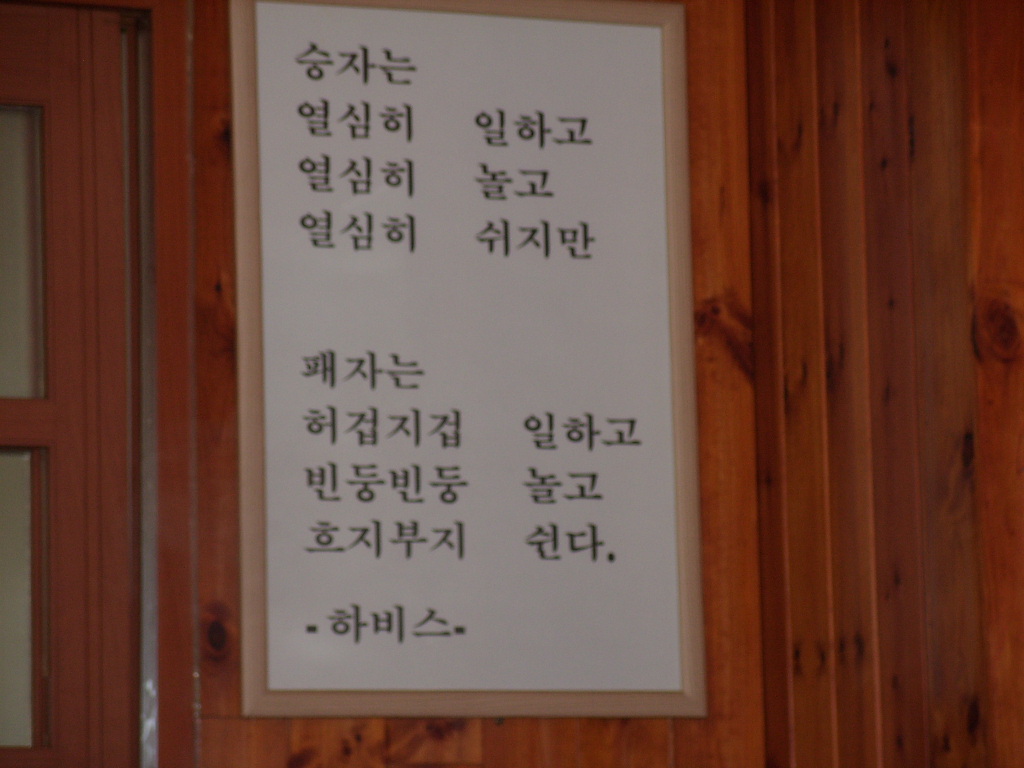 승자는
열심히 일하고
열심히 놀고
열심히 쉬지만
패자는
허겁지겁 일하고
빈둥빈둥 놀고
흐지부지 쉰다.
-하비스-